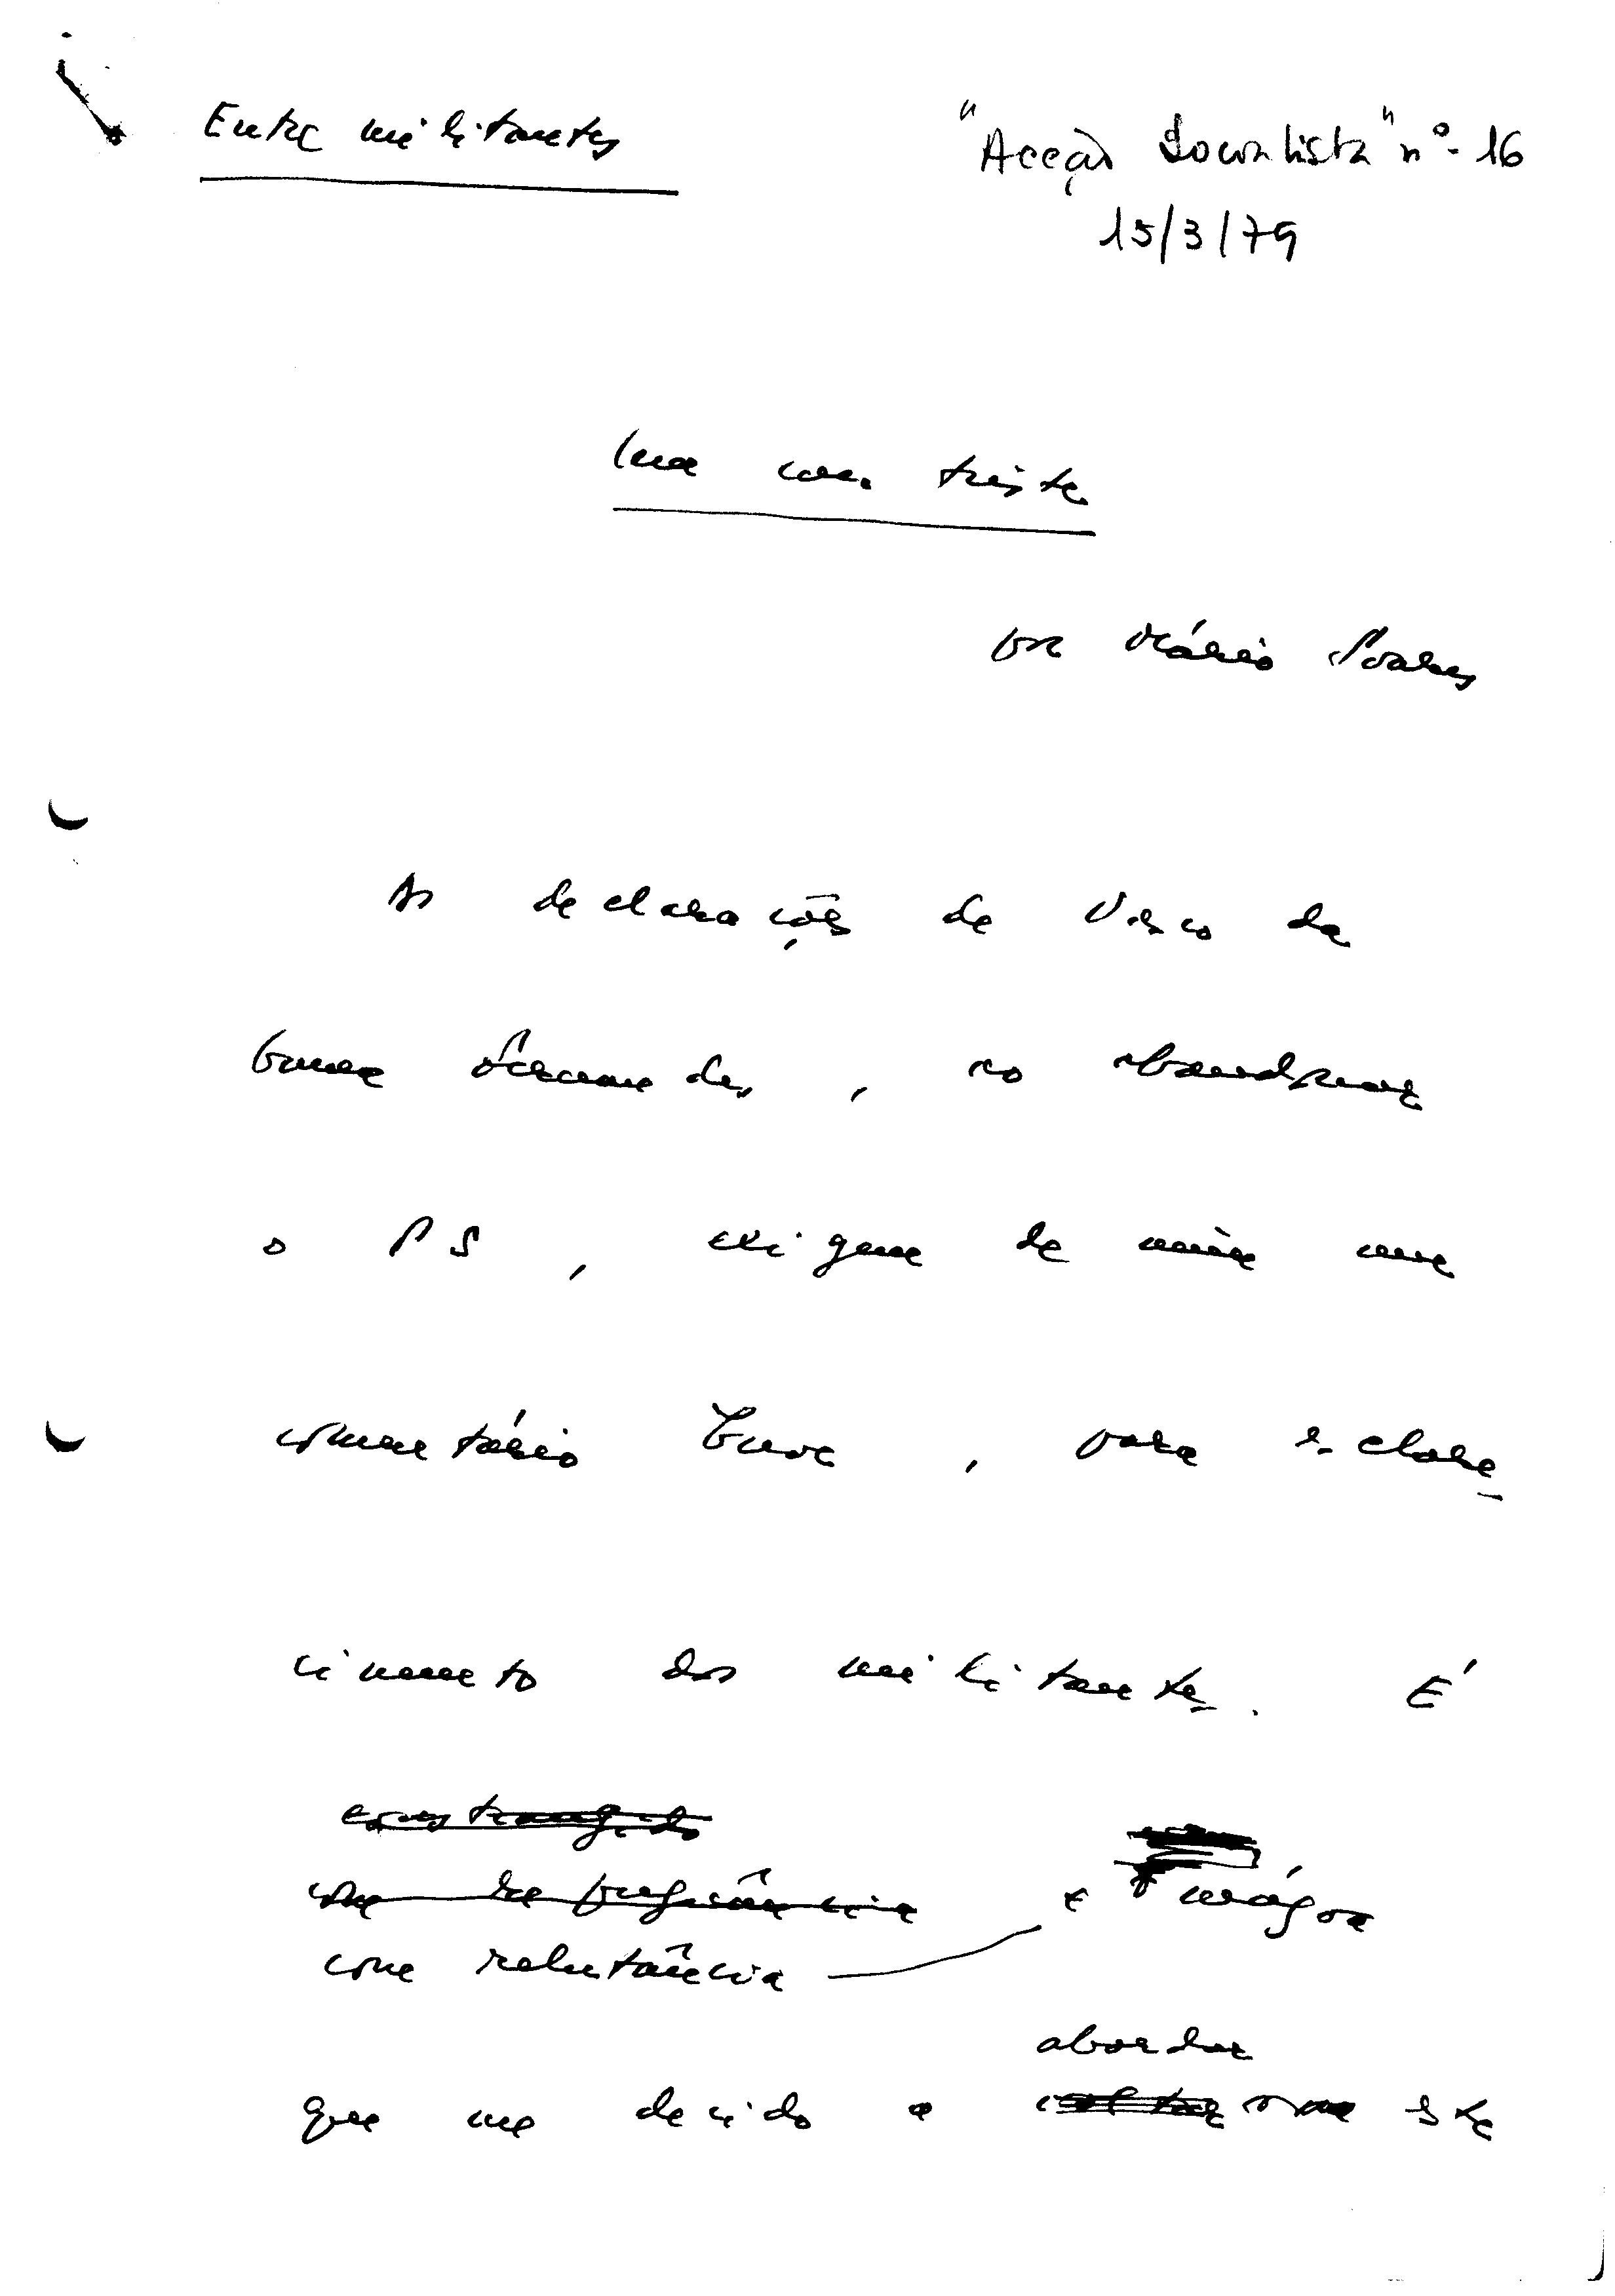 Entre militantes
"Acção Socialista" nº 16
15/3/79
Um caso triste
por Mário Soares
As declarações de Vasco da
Gama Fernandes, ao abandonar
o PS, exigem de mim um
comentário breve, para esclare_
cimento dos militantes. É
constrangido
com repugnância
com relutância e mágoa
abordar
que me decido a este